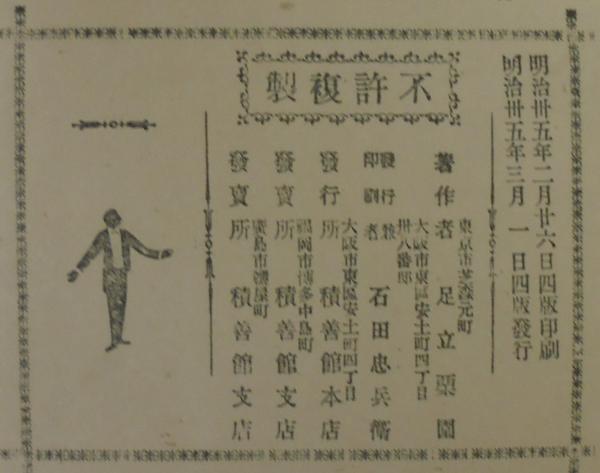 明治卅五年二月廿六日四版印刷
明治卅五年三月一日四版發行
不許複製
東京市芝森元町
著作者 足立栗園
大阪市東區安土町四丁目
卅八番邸
發行兼
印刷者 石田忠兵衞
大阪市東區安土町四丁目
發行所 積善館本店
福岡市博多中島町
發賣所 積善館支店
廣島市播屋町
發賣所 積善館支店